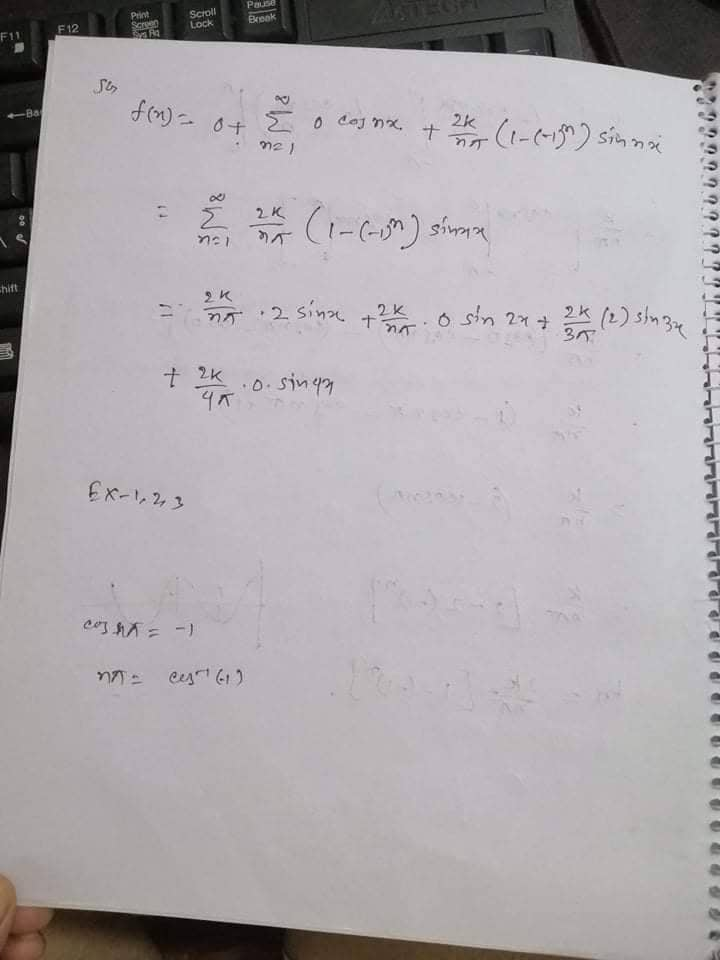 F11
F12
Print
Screen
Sys Rq
Scroll
Lock
Pause
Break
So
f(x) = 0 + ∞∑n=1 0 cos nx + 2K/nπ (1-(-1)ⁿ) sin nx
= ∞∑n=1 2K/nπ (1-(-1)ⁿ) sin nx
= 2K/nπ · 2 sinx + 2K/nπ · 0 sin 2x + 2K/3π (2) sin 3x
+ 2K/4π · 0 · sin 4x
Ex-1, 2, 3
cos nπ = -1
nπ = cos⁻¹(-1)